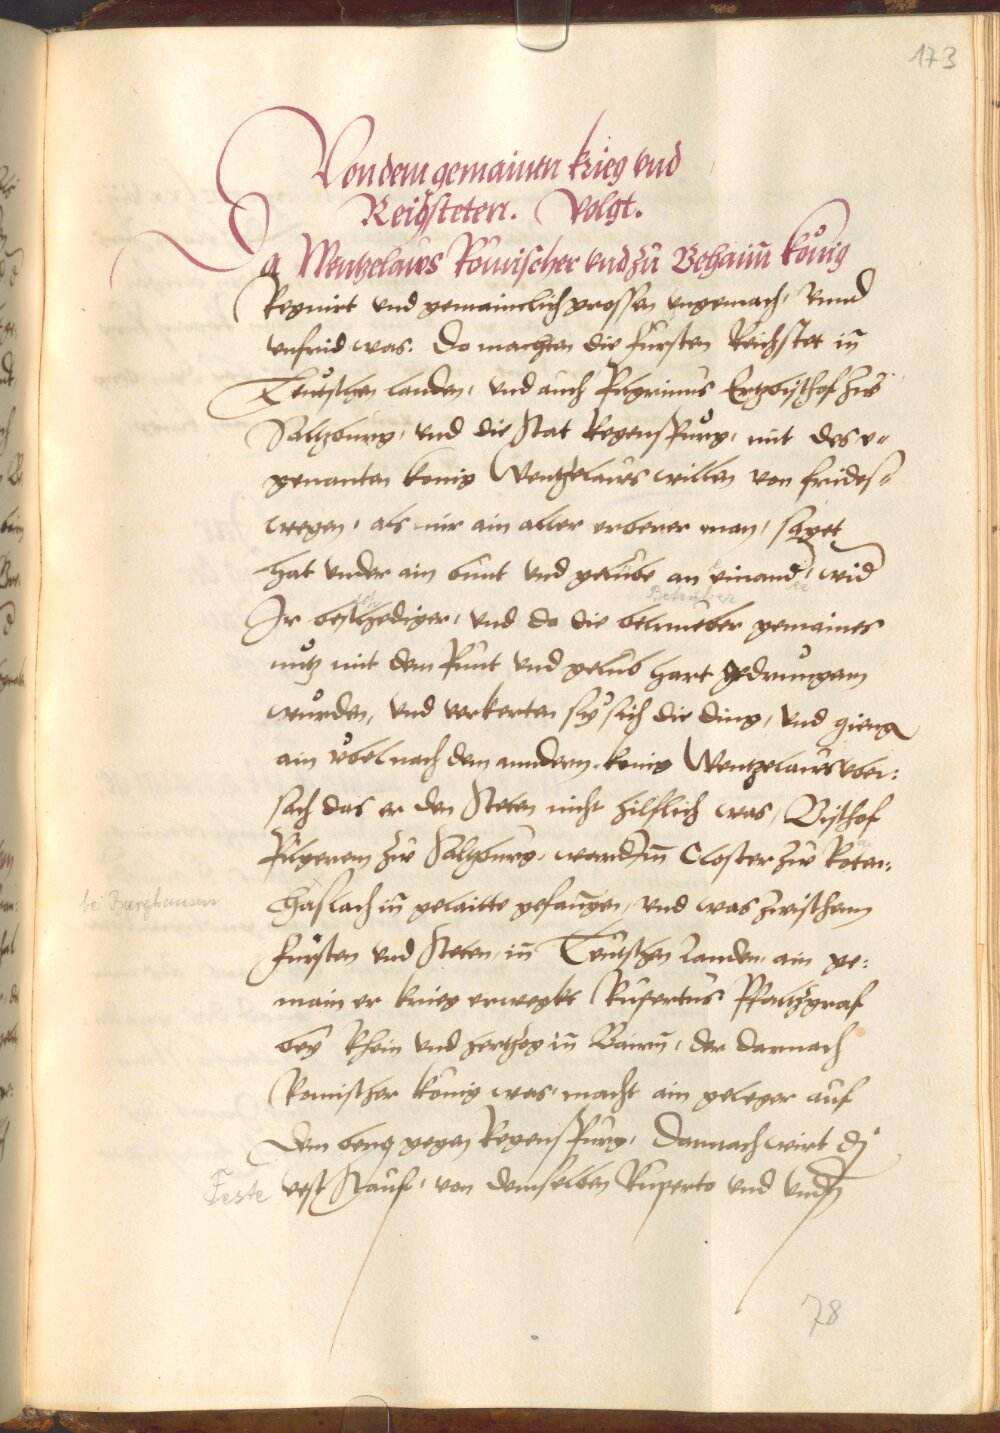 173
Von dem gemainen krieg vnd
Reichsteten. Volgt.
Da Wentzelaws Römischer vnd zu Behaim könig
Regnirt vnd gemainclich grossen vngemach, vnnd
vnfrid was. Do machten die fürsten Reichstet in
Teutschen landen, vnd auch Pilgrimus Ertzbischof zw
Saltzburg, vnd die Stat Regenspurg, mit des e=
genanten konig Wentzelaws willen von frides=
wegen, als mir ain aller erberer man, saget
hat vnder ain bunt vnd gelübe an einander, wid
er
Betrüber
Ir beschediger, vnd do die betrueber gemaines
nutz mit dem Punt vnd gelüb hart gedrungenn
wurden, vnd verkerten sy sich die ding, vnd gieng
ain übel nach dem anndern. konig Wentzelaws vber:
sach das er den Steten nicht hilflich was, Bischof
Pilgerem zw Saltzburg, ward im Closter zw Raten:
bei Burghausen
haslach in gelaitte gefangen, vnd was zwischenn
fürsten vnd Steten, in Teutschen Landen, ain ge:
main er krieg erwegkt Rupertus Pfaltzgraf
bey Rhein vnd hertzog in Bairn, der darnach
Romischer könig was, macht ain geleger auf
dem berg gegen Regenspurg, darnach wirt dj
Feste
vest Stauf, von demselben Ruperto vnd vndn
78